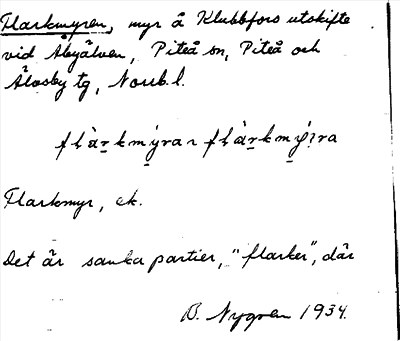 Flarkmyren, myr å Klubbfors utskifte
vid Åbyälven, Piteå sn, Piteå och
Älvsby tg, Norrb. l.
flark
Flarkmyr, ek.
Det är sanka partier, "flarker", där
B. Nygren 1934.